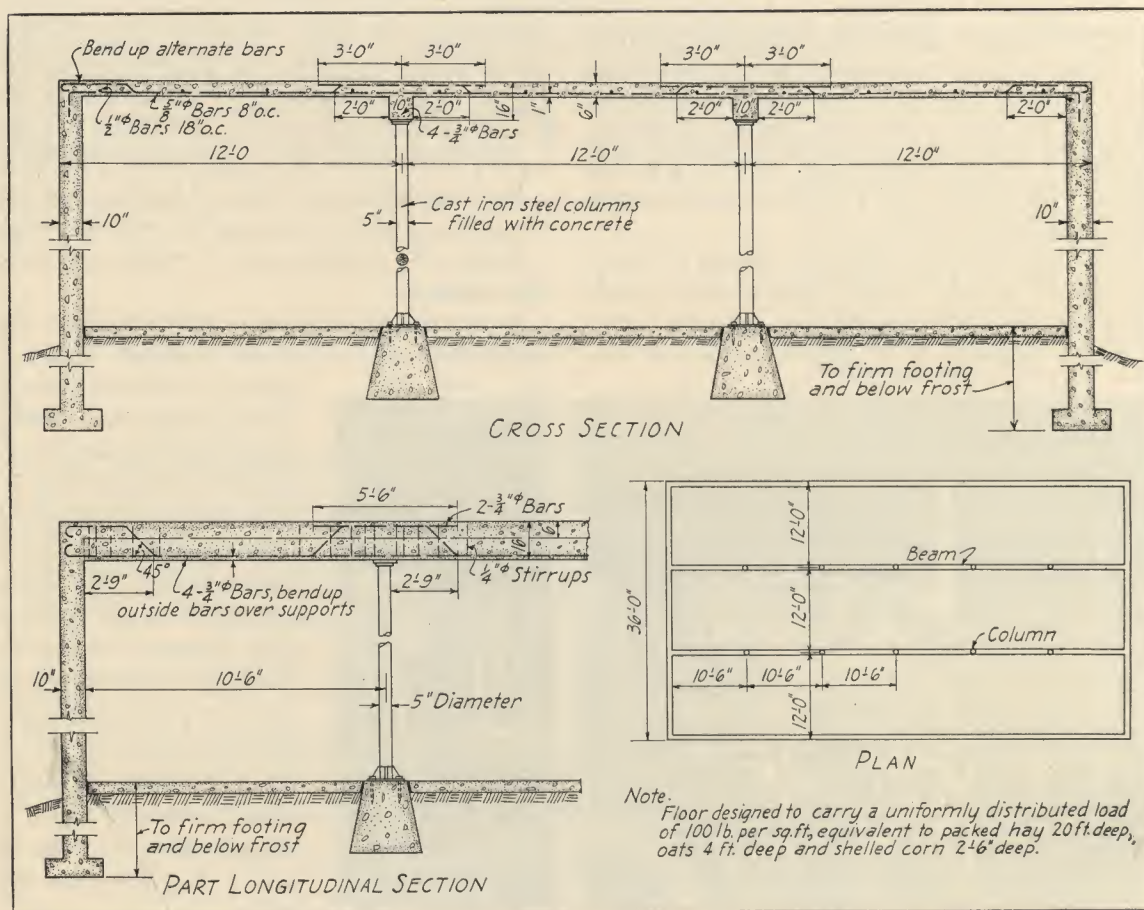 Bend up alternate bars
3'-0" 3'-0" 3'-0" 3'-0"
5/8"ᶲ Bars 8"o.c.
1/2"ᶲ Bars 18"o.c.
2'-0" 10" 2'-0" 16" 1" 6" 2'-0" 10" 2'-0" 2'-0"
4-3/4"ᶲ Bars
12'-0 12'-0" 12'-0"
10" 5" 10"
Cast iron steel columns
filled with concrete
To firm footing
and below frost
CROSS SECTION
5'-6"
2-3/4"ᶲ Bars
6"
16"
45°
1/4"ᶲ Stirrups
2'-9" 2'-9"
4-3/4"ᶲ Bars, bend up
outside bars over supports
10" 10'-6"
5" Diameter
To firm footing
and below frost
PART LONGITUDINAL SECTION
12'-0"
Beam
36'-0" 12'-0"
Column
10'-6" 10'-6" 10'-6"
12'-0"
PLAN
Note.
Floor designed to carry a uniformly distributed load
of 100 lb. per sq.ft, equivalent to packed hay 20 ft. deep,
oats 4 ft. deep and shelled corn 2'-6" deep.